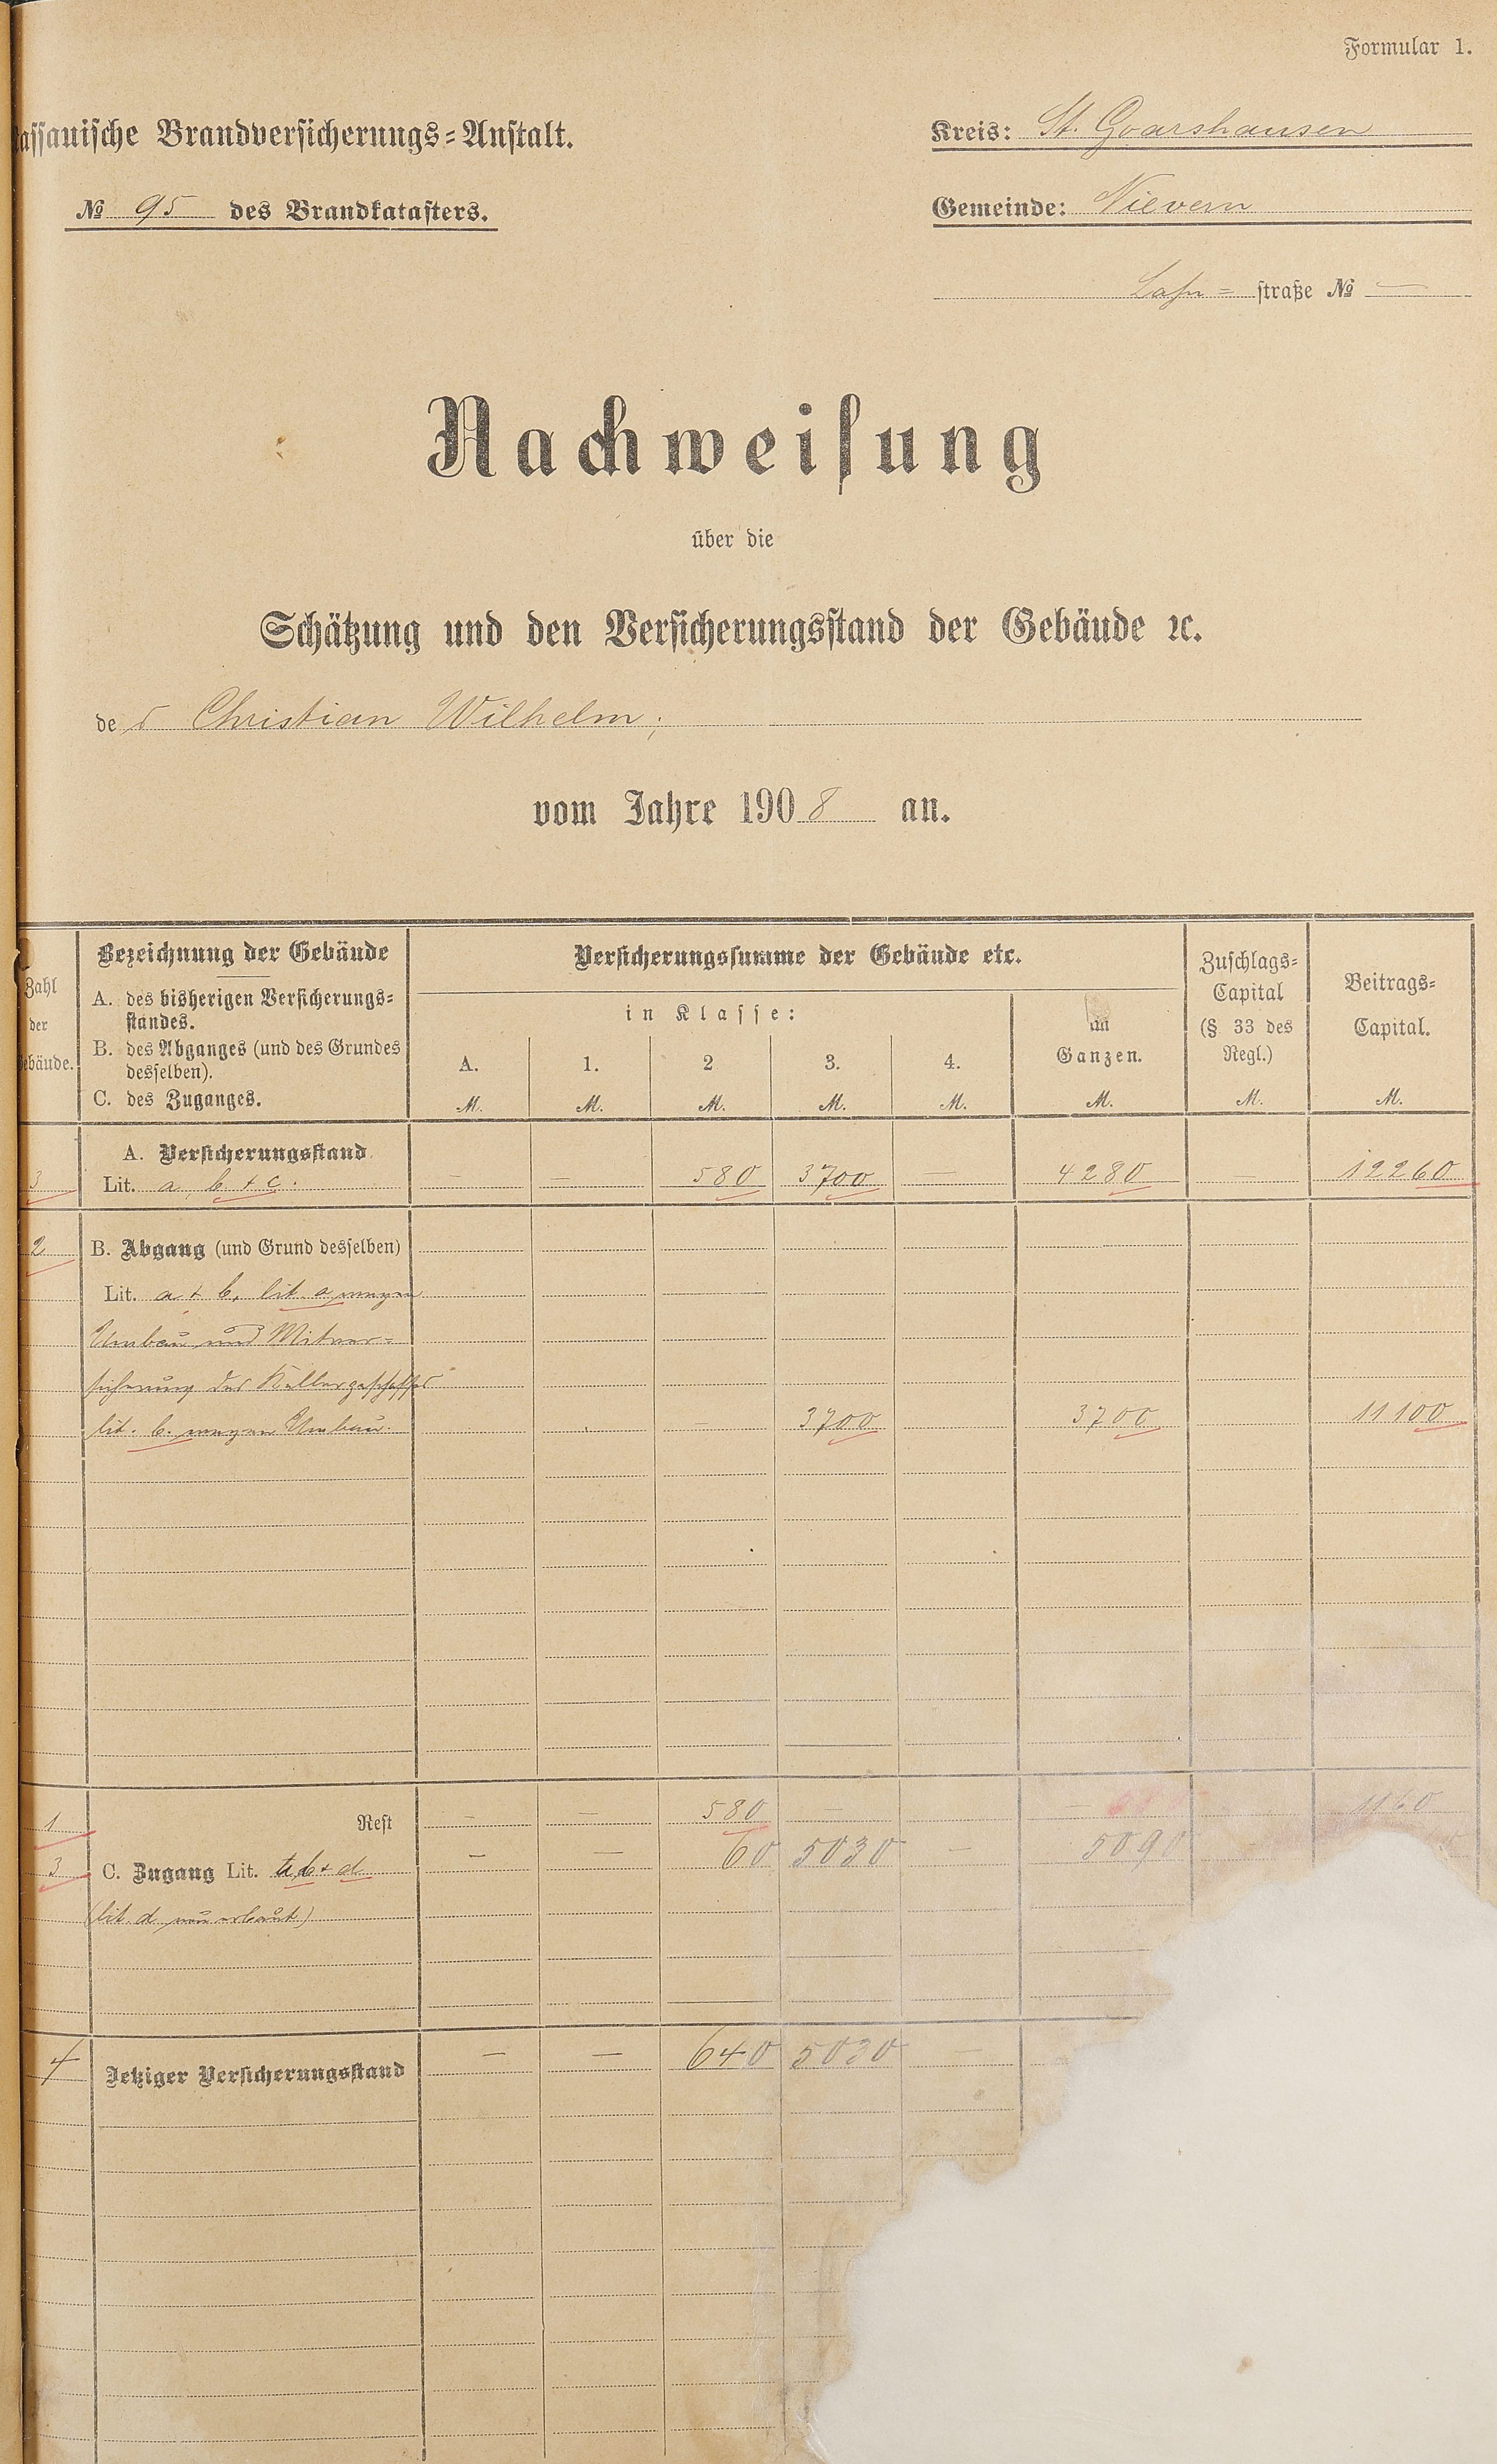 Formular 1.
assauische Brandversicherungs=Anstalt.
Kreis: St. Goarshausen
№ 95 des Brandkatasters.
Gemeinde: Nievern
Lahn= straße № —
Nachweisung
über die
Schätzung und den Versicherungsstand der Gebäude ꝛc.
des Christian Wilhelm,
vom Jahre 1908 an.
Zahl der ebäude.
Bezeichnung der Gebäude
A. des bisherigen Versicherungs=
standes.
B. des Abganges (und des Grundes
desselben).
C. des Zuganges.
Versicherungssumme der Gebäude etc.
in Klasse:
A. 1. 2 3. 4.
im
Ganzen.
Zuschlags=
Capital
(§ 33 des
Regl.)
Beitrags=
Capital.
M. M. M. M. M. M. M. M.
A. Versicherungsstand
3 Lit. a, b + c. — — 580 3700 — 4280 — 12260
2 B. Abgang (und Grund desselben)
Lit. a + b, lit. a wegen
Umbau und Mitver=
sicherung des
lit. b. wegen Umbau. — 3700 3700 11100
1 Rest — — 580 — — 1160
3 C. Zugang Lit. a, b + d — — 60 5030 — 5090
(lit. d neu erbaut)
4 Jetziger Versicherungsstand — — 640 5030 —